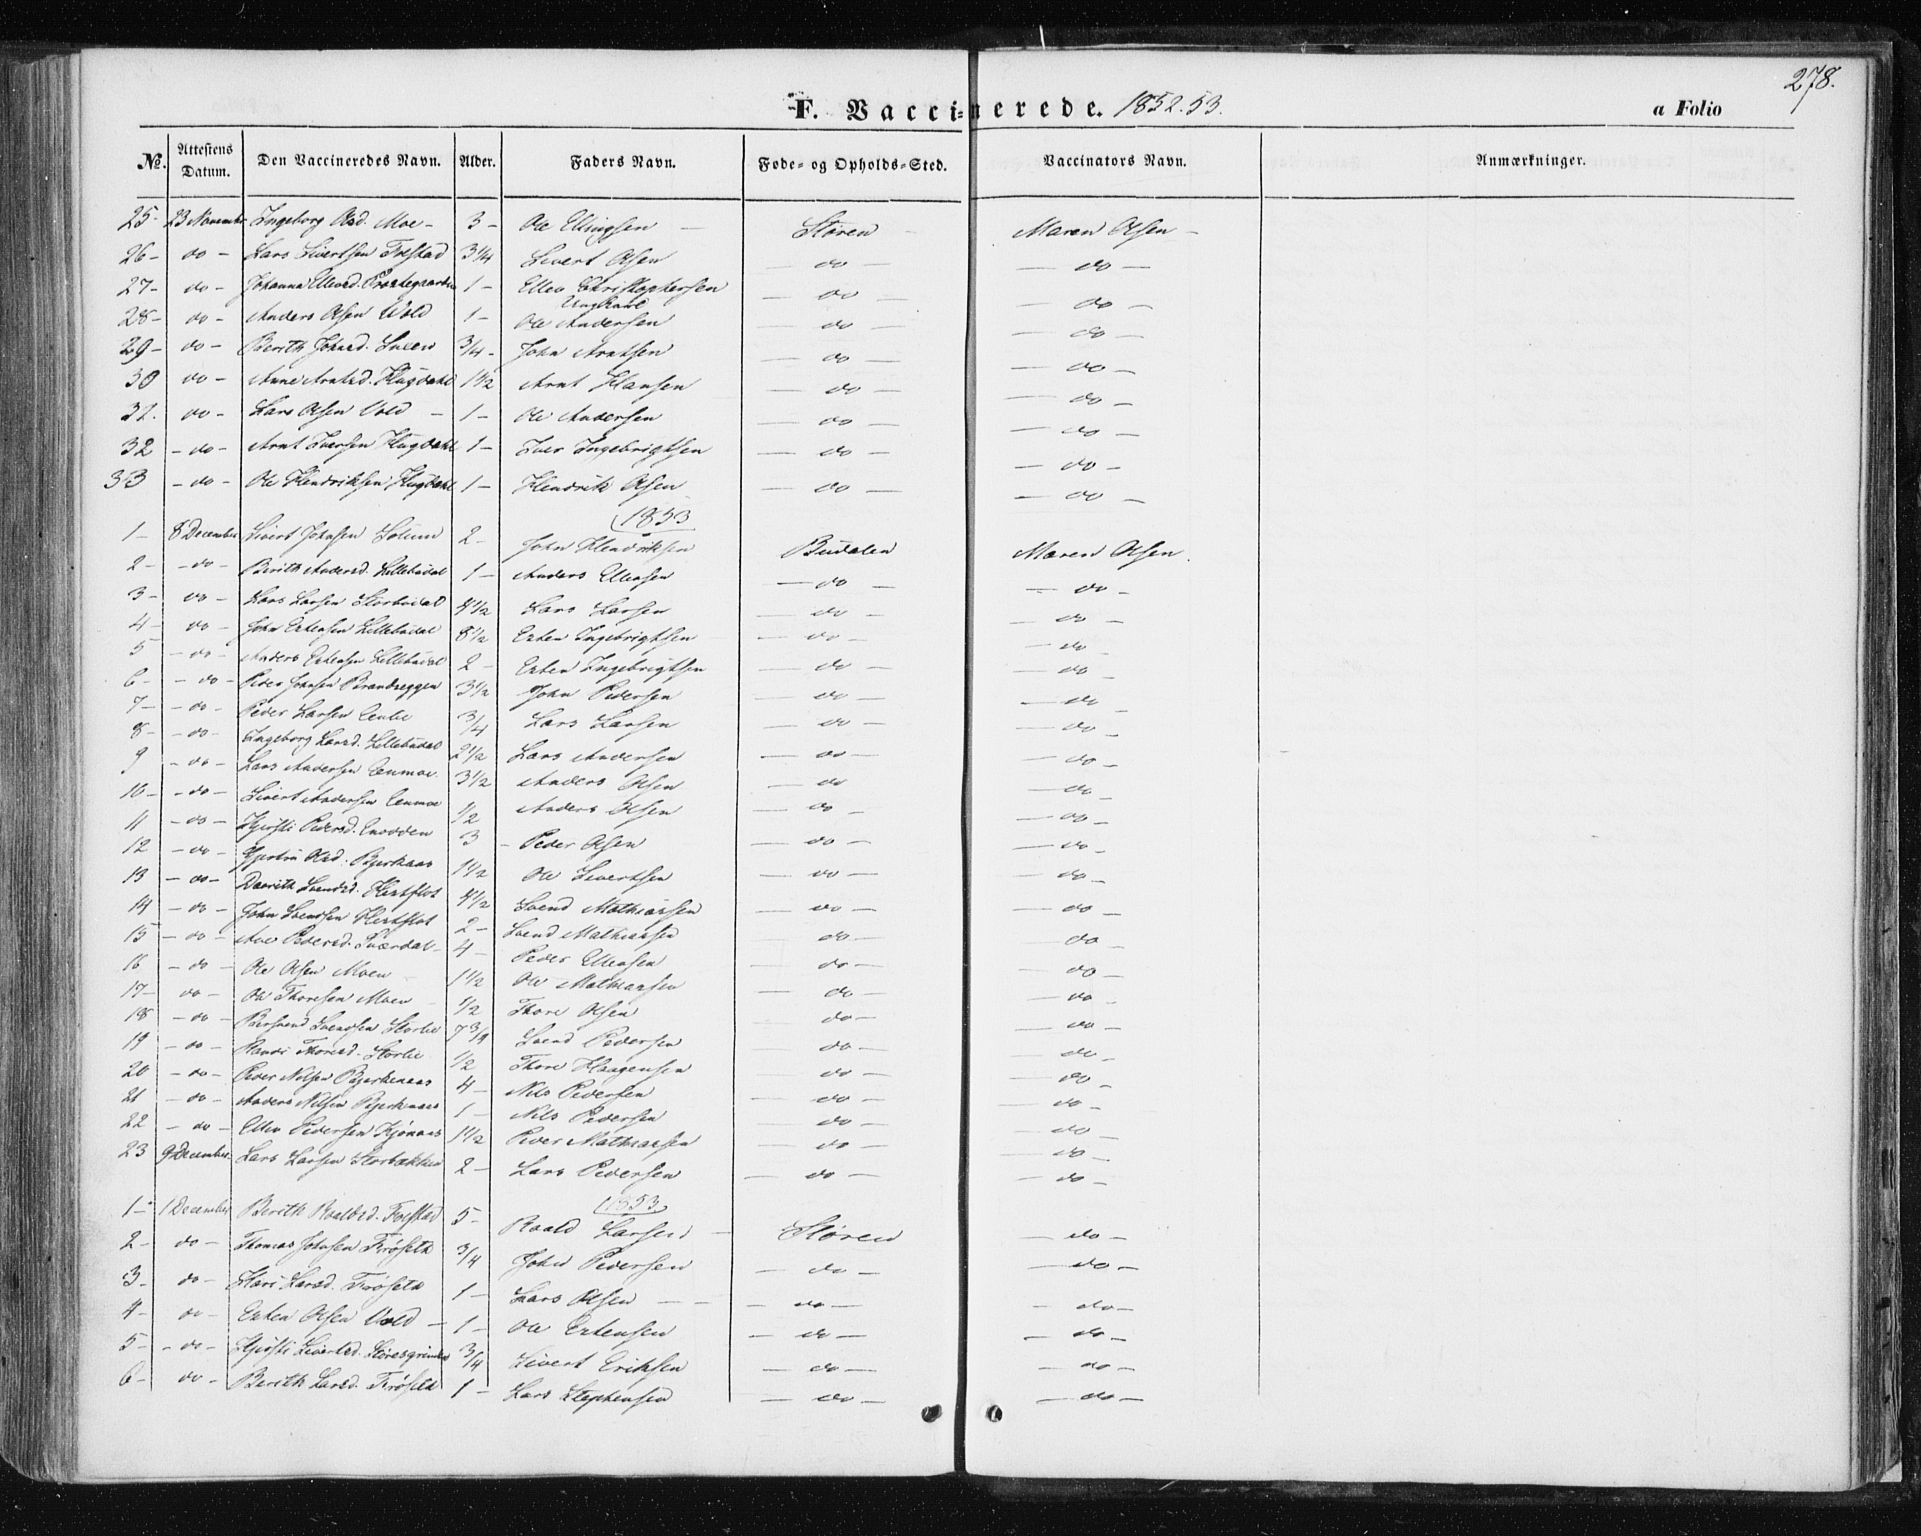 278.
F. Vaccinerede. 1852.53. a Folio
No. Attestens Datum. Den Vaccineredes Navn. Alder. Faders Navn. Føde- og Opholds-Sted. Vaccinators Navn. Anmærkninger.
25- 23 November Ingeborg Olsd. Moe - 3 - Ole Ellingsen - Støren - Maren Olsen -
26 - do - Lars Sivertsen Folstad 3 1/4 Sivert Olsen - do - - do -
27 - do - Johanna Ellevsd. Præstegaarden 1 - Ellev Christophersen - do - - do -
28 - do - Anders Olsen Wold 1 - Ole Andersen - do - - do -
29 - do - Berith Johnsd. 3/4 - John Arntsen - do - - do -
30 do - Anne Arntsd. Hugdahl 1 1/2 Arnt Hansen - do - - do -
31. do - Lars Olsen Vold - 1 - Ole Andersen - do - - do -
32 - do - Arnt Iversen Hugdahl 1 - Iver Ingebrigtsen - do - - do -
33 - do - Ole Hendriksen Hugdahl 1 - Hendrik Olsen - do - - do -
1853
1 - 8 December Sivert Johnsen Solum 2 - John Hendriksen Budalen Maren Olsen.
2 - - do - Berith Andersd. Lillebudal 1 - Anders Ellensen - do - - do -
3 - do - Lars Larsen Storbudal 4 1/2 Lars Larsen - do - - do -
4 - do - John Estensen Lillebudal 8 1/2 Esten Ingebrigtsen - do - - do -
5 - do - Anders Estensen Lillebudal 2 - Esten Ingebrigtsen - do - - do -
6 - - do - Peder Johnsen Brandseggen 3 1/2 John Pedersen - do - - do -
7 - - do - Peder Larsen Enlie 3/4 Lars Larsen - do - - do -
8 - - do - Ingeborg Larsd. Lillebudal 2 1/2 Lars Andersen - do - - do -
9 - do - Lars Andersen Enmoe 3 1/2 Anders Olsen - do - do -
10 - - do - Sivert Andersen Enmoe 1/2 Anders Olsen - do - - do -
11 - do - Kjersti Pedersd. Enodden 3 - Peder Olsen - do - - do -
12 - do - Olsd. Bjerkaas 1 1/2 Ole Sivertsen - do - - do -
13 - do - Dorrith Svendsd. Hertflot 4 1/2 Svend Mathiassen - do - - do -
14 - do - John Svendsen Hertflot 2 - Svend Mathiassen - do - - do -
15 - do - Ane Pedersd. Sværdal - 4 - Peder Ellensen - do - - do -
16 - do - Ole Olsen Moen 1 1/2 Ole Mathiassen - do - - do -
17 - do - Ole Thoresen Moen 1/2 Thore Olsen - do - - do -
18 - do - Svendsen Storlie 7 3/4 Svend Pedersen - do - - do -
19 - do - Randi Thoresd. Storlie 1/2 Thore Haagensen - do - - do -
20 - do - Peder Nilsen Bjerkenaas 4 - Nils Pedersen - do - - do -
21 - do - Anders Nilsen Bjerkenaas 1 - Nils Pedersen - do - - do -
22 - do - Ellev Pedersen 1 1/2 Peder Mathiassen - do - - do -
23 9 December Lars Larsen Storbækken 2 - Lars Pedersen - do - - do -
1853
1 - 1 December Berith Roaldsd. Folstad 5 - Roald Larsen - Støren - do -
2 - do - Thomas Johnsen Frøseth 3/4 John Pedersen - do - - do -
3 - do - Kari Larsd. Frøseth 1 - Lars Olsen - - - do - - do -
4 - do - Esten Olsen Vold - 1 - Ole Estensen - do - - do -
5 - - do - Kjersti Sivertsd. Størensgrinden 3/4 Sivert Eriksen - do - - do -
6 - do - Berith Larsd. Frøseth 1 - Lars Stephensen - do - - do -